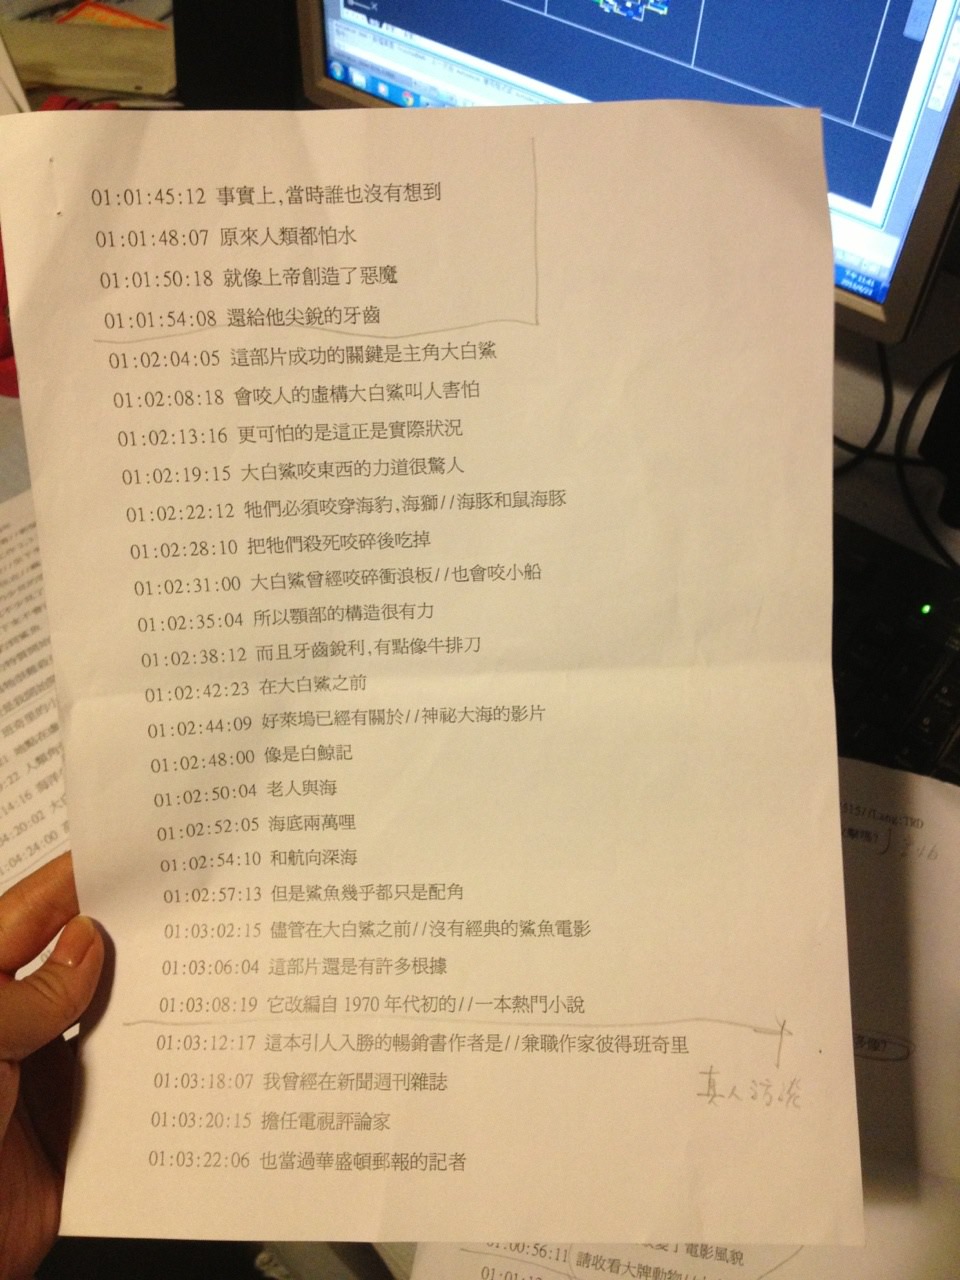 01:01:45:12 事實上,當時誰也沒有想到
01:01:48:07 原來人類都怕水
01:01:50:18 就像上帝創造了惡魔
01:01:54:08 還給他尖銳的牙齒
01:02:04:05 這部片成功的關鍵是主角大白鯊
01:02:08:18 會咬人的虛構大白鯊叫人害怕
01:02:13:16 更可怕的是這正是實際狀況
01:02:19:15 大白鯊咬東西的力道很驚人
01:02:22:12 牠們必須咬穿海豹,海獅//海豚和鼠海豚
01:02:28:10 把牠們殺死咬碎後吃掉
01:02:31:00 大白鯊曾經咬碎衝浪板//也會咬小船
01:02:35:04 所以顎部的構造很有力
01:02:38:12 而且牙齒銳利,有點像牛排刀
01:02:42:23 在大白鯊之前
01:02:44:09 好萊塢已經有關於//神祕大海的影片
01:02:48:00 像是白鯨記
01:02:50:04 老人與海
01:02:52:05 海底兩萬哩
01:02:54:10 和航向深海
01:02:57:13 但是鯊魚幾乎都只是配角
01:03:02:15 儘管在大白鯊之前//沒有經典的鯊魚電影
01:03:06:04 這部片還是有許多根據
01:03:08:19 它改編自 1970 年代初的//一本熱門小說
01:03:12:17 這本引人入勝的暢銷書作者是//兼職作家彼得班奇里
真人訪談
01:03:18:07 我曾經在新聞週刊雜誌
01:03:20:15 擔任電視評論家
01:03:22:06 也當過華盛頓郵報的記者
:14:16
04:20:02
1:04:24:00
01:00:56:11
電影風貌
請收看大牌動物